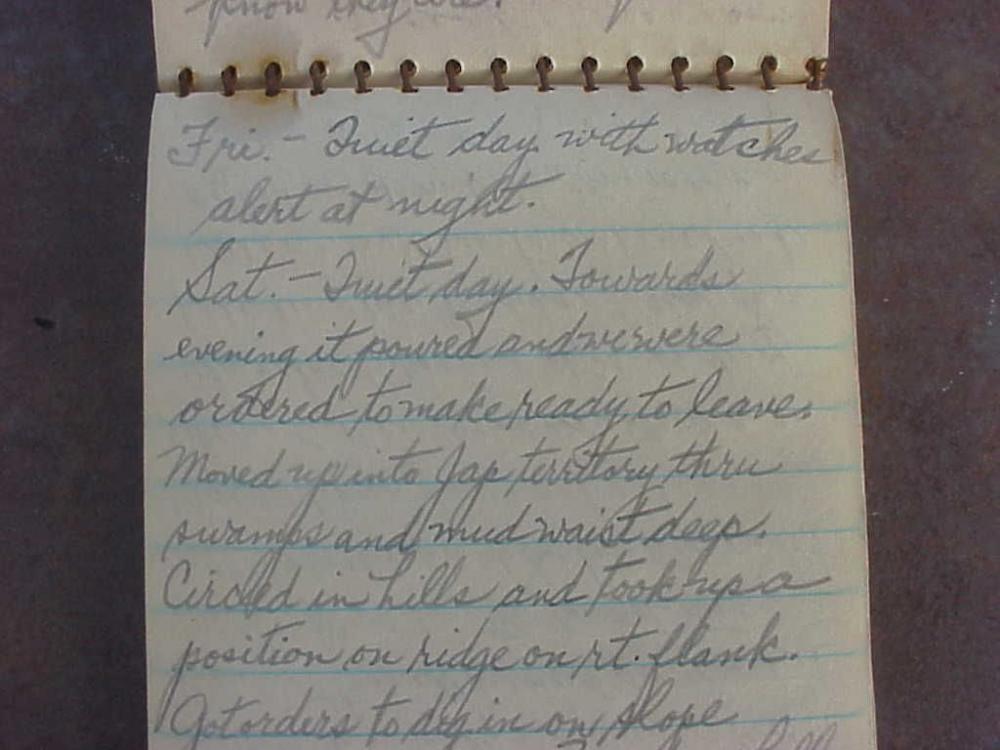 know they are.
Fri. - Quiet day with watches
alert at night.
Sat. - Quiet day. Towards
evening it poured and we were
ordered to make ready to leave.
Moved up into Jap territory thru
swamps and mud waist deep.
Circled in hills and took up a
position on ridge on rt. flank.
Got orders to dig in on slope